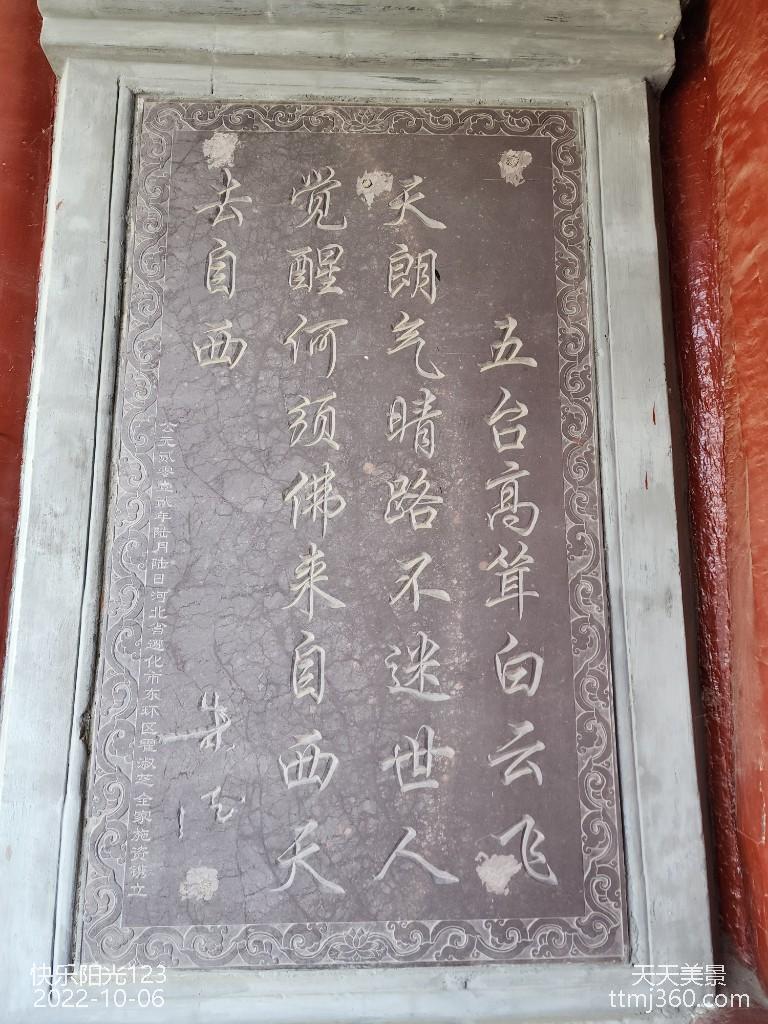 五台高耸白云飞
天朗气晴路不迷世人
觉醒何须佛来自西天
去自西
朱德
公元贰零壹贰年陆月陆日河北省遵化市东环区瞿淑芝全家施资镌立
快乐阳光123
2022-10-06
天天美景
ttmj360.com